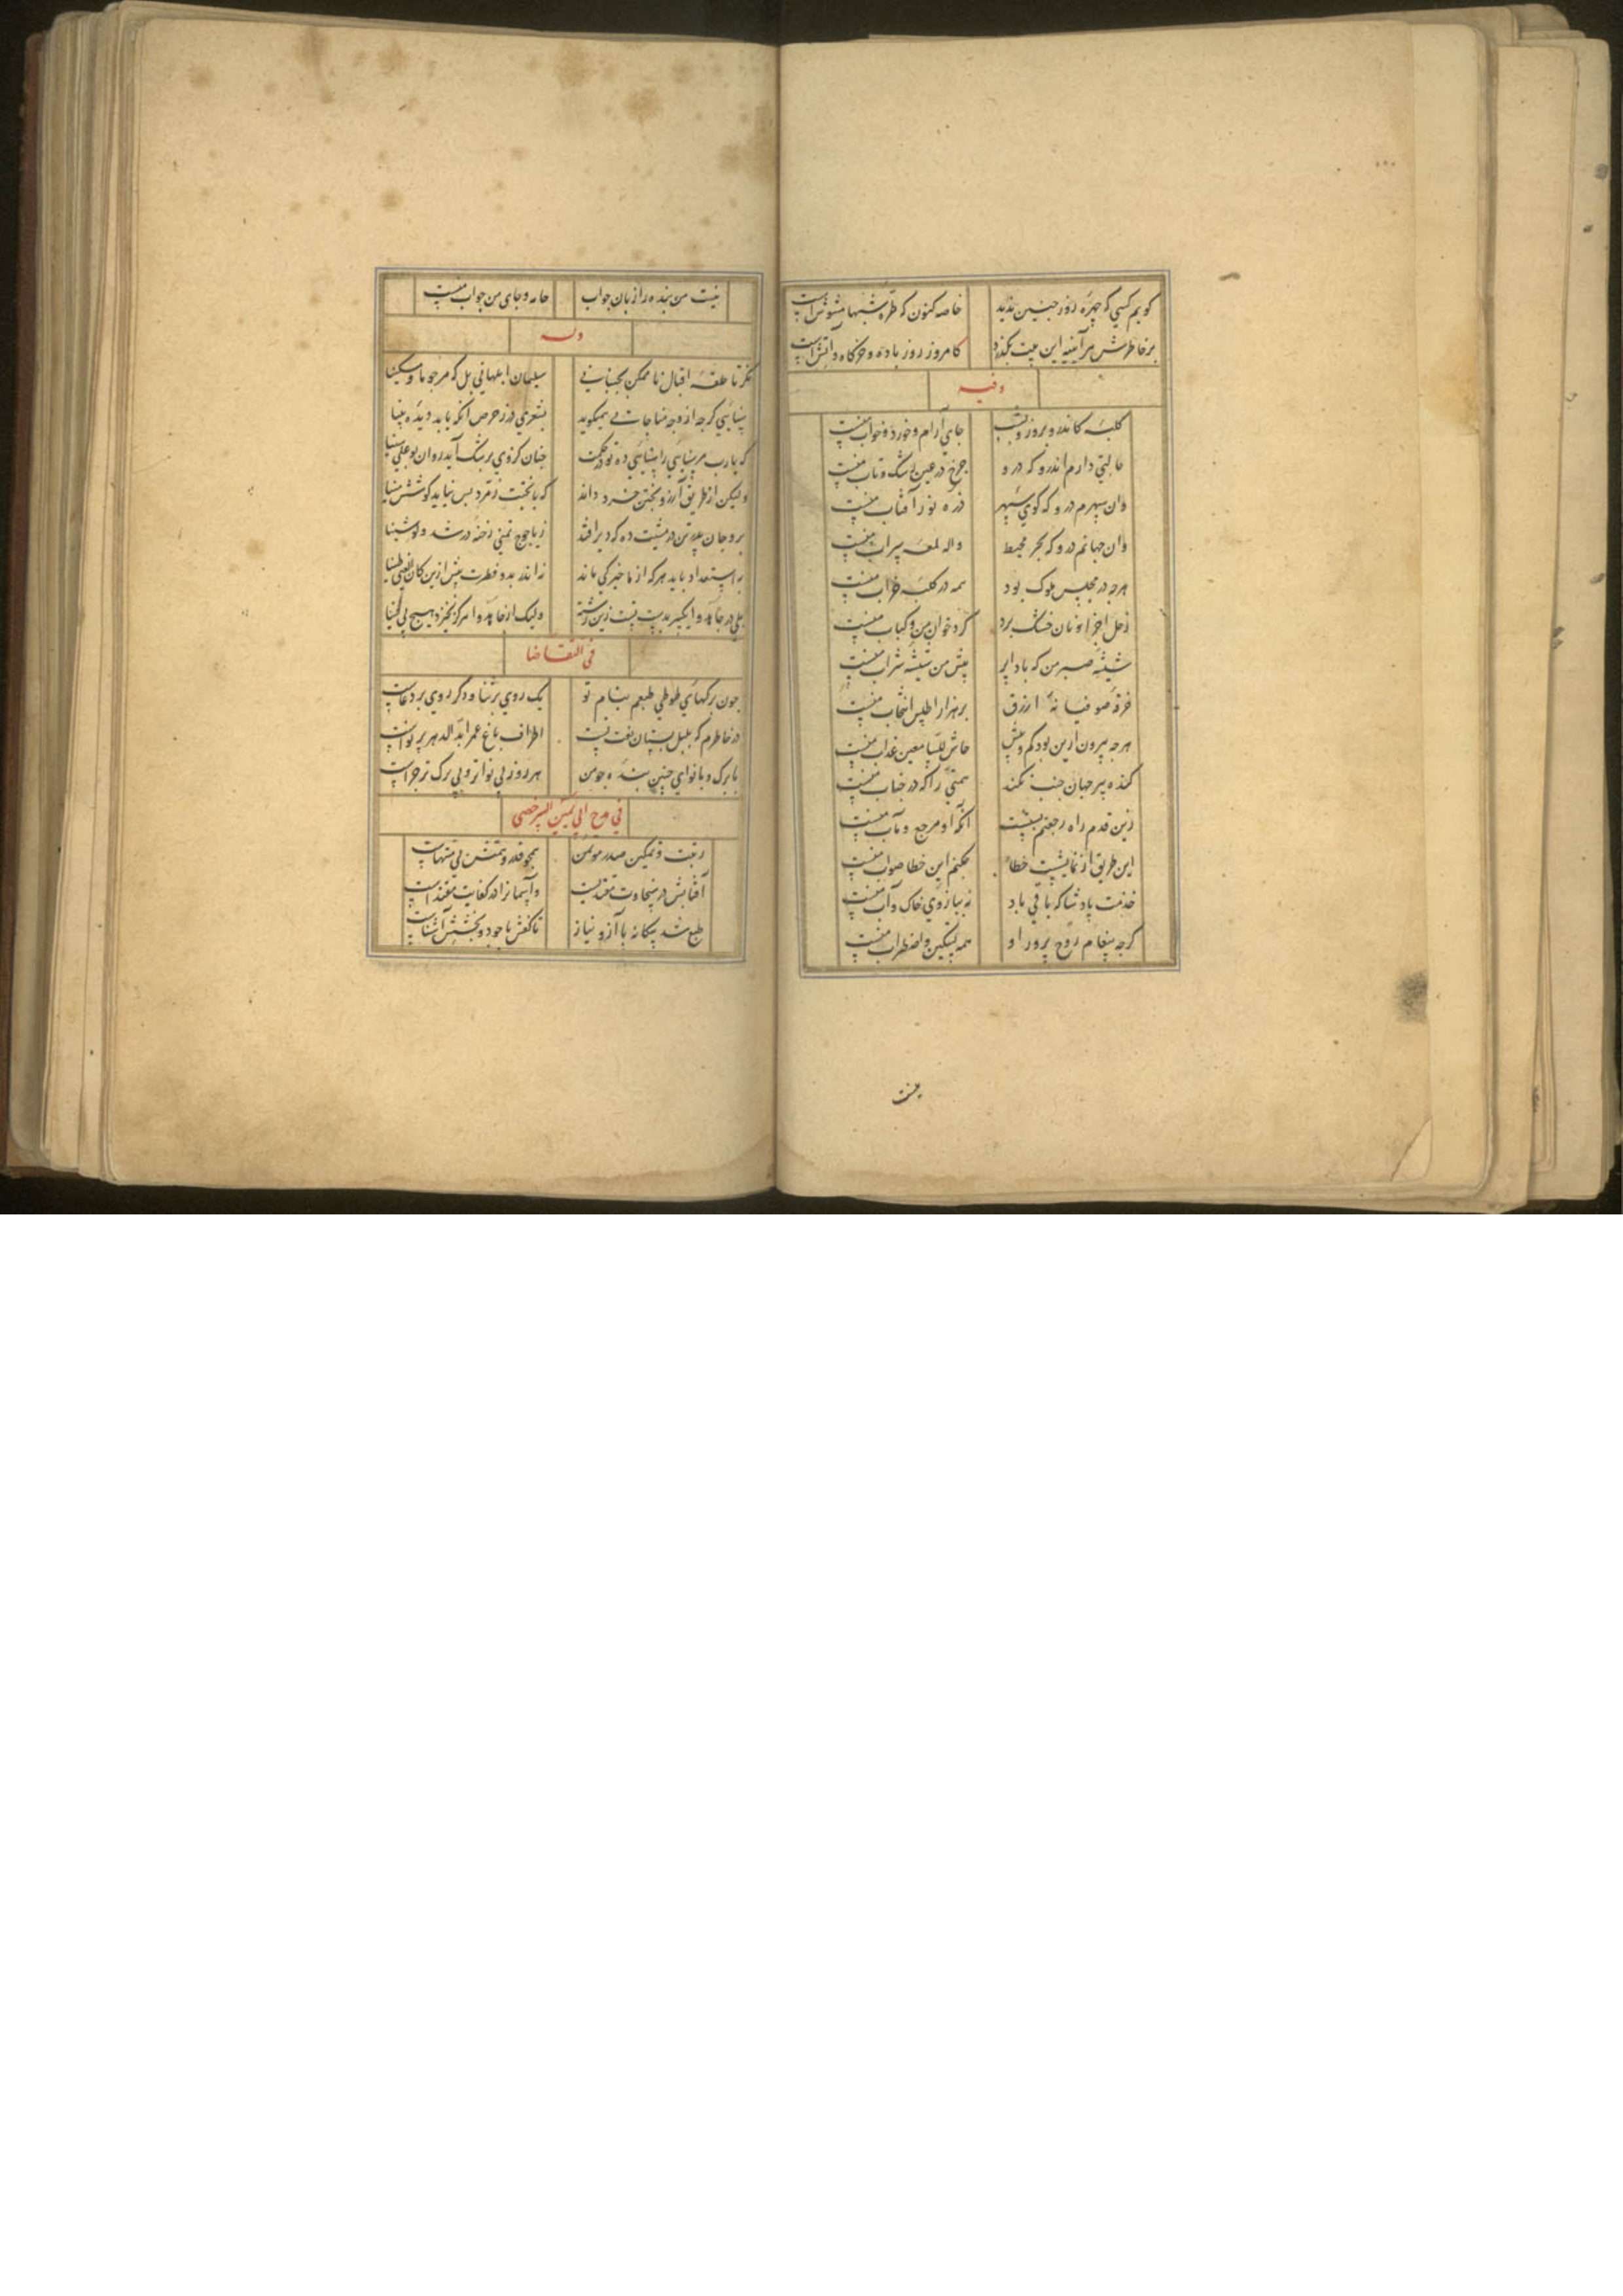 کویم کسی که چهرهٔ روز چنین ندید خاصه کنون که طرهٔ شبها مشوش است
بر خاطرش هر آینه این بیت بگذرد کامروز روز باده و خرکاه و آتش است
وفیه
کلبهٔ کاندرو بروز و بشب جای آرام و خورد و خواب منست
حالتی دارم اندرو که درو چرخ در عین رشک و تاب منست
وان سپهرم درو که کوی سپهر ذره نور آفتاب منست
وان جهانم درو که بحر محیط واله لمعه سراب منست
هرچه در مجلس ملوک بود همه در کلبه خراب منست
زحل اجزا و نان خشک برو کرد خوان من و کباب منست
شیشه صبر من که باد پر پیش من شیشه شراب منست
خرقه صوفیانه ازرق بر هزار اطلس انتخاب منست
هرچه بیرون ازین بود کم و بیش حاش للسامعین عذاب منست
کنده پیر جهان جنب نکند همتی را که در جناب منست
زین قدم راه رجعتم بستست آنکه او مرجع و مآب منست
این طریق از نمایشیست خطا چکنم این خطا صواب منست
خدمت پادشا که باقی باد نه ببازوی خاک و آب منست
کرچه پیغام روح پرور او همه تسکین و اضطراب منست
نیست
نیست من بنده را زبان جواب جامه و جای من جواب منست
وله
نکر تا حلقه اقبال ناممکن نجنبانی سلیما ابلها نی بل که مرحوما و مسکینا
سنایی کرچه از وجه مناجاتی همیکوید بشعری در ز حرص آنکه یابد دیدهٔ بینا
که یارب مر سنایی را سنایی ده تو در حکمت چنان کز وی برشک آید روان بوعلی سینا
ولیکن از طریق آرزو پختن خرد داند که با تخت زمرد بس نیاید کوشش مینا
برو جان پدر تن در مشیت ده که دیر افتد ز یاجوج تمنی رخنه در سد ولو شینا
به استعداد یابد هرکه از ما چیزکی یابد نه اندر بدو فطرت پیش ازین کان الفتی طینا
بلی در جاهدوا یکسر بدست تست این رشته ولیک از جاهدوا هرکز نخیزد هیچ بی فینا
فی التقاضا
چون برکهای طوطی طبعم بنام تو یک روی بر ثنا و دکر روی بر دعاست
در خاطرم که بلبل بستان نعت تست اطراف باغ عمر ابد الدهر پر نواست
با برک و با نوای چنین بندهٔ چو من هر روز بی نواتر و بی برک تر چراست
فی مدح ابی الحسین السرخسی
رتبت و تمکین صدر موتمن همچو قدر و همتش بی منتهاست
آفتابش در سخاوت مقتدیست وآسمانرا در کفایت مقتداست
طبع شد بیکانه با آز و نیاز تا کفش با جود و بخشش آشناست